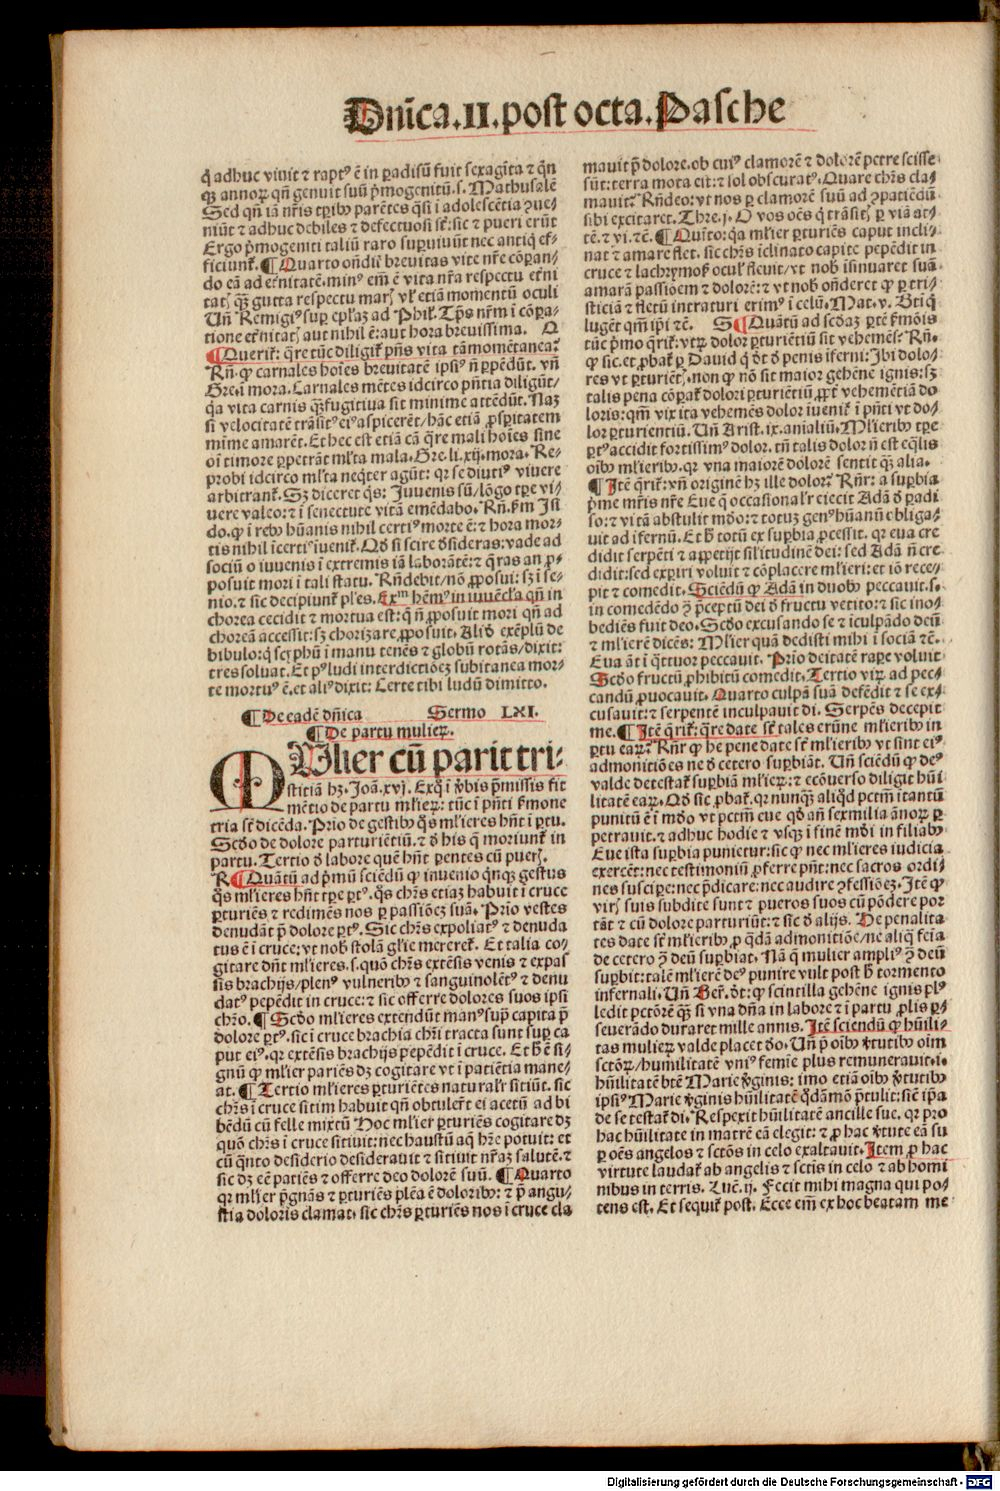 Dn̄ica.II.post octa.Pasche
q̇ adhuc viuit ⁊ raptꝰ ē in ꝑadisū fuit sexagīta ⁊ q̄n
qꝫ annoꝝ qn̄ genuit suū p̄mogenitū.s. Mathusalē
Sed qn̄ iā nr̄is tꝑibꝰ parētes q̄si ī adolescētia ꝯue-
niūt ⁊ adhuc debiles ⁊ defectuosi st̄: sic ⁊ pueri erūt
Ergo p̄mogeniti taliū raro suꝑuiuūt nec antiq̇ ef-
ficiunt̄. ¶ Quarto on̄die breuitas vite nr̄e cōꝑan-
do eā ad et̄nitatē.minꝰ em̄ ē vita nr̄a respectu et̄ni
tatꝭ qꝫ̄ gutta respectu marꝭ vl̓ etiā momentū oculi
Un̄ Remigiꝰ suꝑ epl̄aꝫ ad Phil̓. Tp̄s nr̄m ī cōꝑa-
tione et̄nitatꝭ aut nihil ē: aut hora breuissima. O
¶ Querit̄: q̄re tūc diligit̄ pn̄s vita tā momētanea?
Rn̄. ꝙ carnales hoīes breuitatē ipsiꝰ nō ꝑpēdūt. vn̄
Gre.ī mora. Carnales mētes idcirco pn̄tia diligūt/
q̇a vita carnis qꝫ̄ fugitiua sit minime attēdūt. Naꝫ
si velocitatē trāsitꝰ eiꝰ aspicerēt/hāc etiā ꝓsꝑitatem
mīme amarēt. Et hec est etiā cā q̄re mali hoīes sine
oī timore ꝑpetrāt ml̓ta mala. Gre.li.xij.mora. Re-
probi idcirco ml̓ta neq̄ter agūt: qꝛ se diutiꝰ viuere
arbitrant̄. Sꝫ diceret q̄s: Iuuenis sū/lōgo tꝑe vi-
uere valeo: ⁊ ī senectute vitā emēdabo. Rn̄. ꝑm Isi
do. ꝙ ī rebꝰ hūanis nihil certiꝰ morte ē: ⁊ hora mor-
tis nihil īcertiꝰ iuenit̄. Qd̓ si scire d̓sideras: vade ad
sociū o iuuenis ī extremis iā laborātē: ⁊ q̄ras an ꝓ-
posuit mori ī tali statu. Rn̄debit/nō ꝓposui: sꝫ ī se-
nio. ⁊ sic decipiunt̄ pl̓es. Exᵐ hēmꝰ in iuuēcl̓a qn̄ in
chorea cecidit ⁊ mortua est: q̄ nō ꝓposuit mori qn̄ ad
choreā accessit: sꝫ chorizare ꝓposuit. Aliḋ exēplū de
bibulo: q̇ scyphū ī manu tenēs ⁊ globū rotās/dixit:
tres soluat. Et pꝰ ludi interdictiōeꝫ subitanea mor-
te mortuꝰ ē. et aliꝰ dixit: Certe tibi ludū dimitto.
¶ De eadē dn̄ica Sermo LXI.
¶ De partu mulieꝝ.
MUlier cū parit tri-
sticiā hꝫ. Joā.xvj. Exq̇ ī v̓bis p̄missis fit
mētio de partu ml̓ieꝝ: tūc ī pn̄ti ẜmone
tria st̄ dicēda. Prio de gestibꝰ q̄s ml̓ieres hn̄t ī ꝑtu.
Scḋo de dolore parturiētiū. ⁊ ḋ his q̄ moriunt̄ in
partu. Tertio ḋ labore quē hn̄t ꝑentes cū puerꝭ.
R ¶ Quātū ad p̄mū sciēdū ꝙ inuenio q̄nqꝫ gestus
q̄s ml̓ieres hn̄t tꝑe ꝑtꝰ. q̄s chr̄s etiaꝫ habuit ī cruce
ꝑturiēs ⁊ redimēs nos ꝑ passiōeꝫ suā. Prio vestes
denudāt p̄ dolore ꝑtꝰ. Sic chr̄s expoliatꝰ ⁊ denuda
tus ē ī cruce: vt nob̄ stolā gl̓ie mereret̄. Et talia co-
gitare dn̄t ml̓ieres. s. quō chr̄s extēsis venis ⁊ expas
sis brachijs/plenꝰ vulneribꝰ ⁊ sanguinolētꝰ ⁊ denu
datꝰ pepēdit in cruce: ⁊ sic offerre dolores suos ipsi
chr̄o. ¶ Scḋo ml̓ieres extendūt manꝰ sup̄ capita p̄
dolore ꝑtꝰ. sic ī cruce brachia chr̄i tracta sunt suꝑ ca
put eiꝰ. qꝛ extēsis brachijs pepēdit ī cruce. Et h̄ ē si-
gnū ꝙ ml̓ier pariēs dꝫ cogitare vt ī patiētia mane-
at. ¶ Tertio ml̓ieres ꝑturiētes natural̓r sitiūt. sic
chr̄s ī cruce sitim habuit qn̄ obtuler̄t ei acetū ad bi
bēdū cū felle mixtū Hoc ml̓ier ꝑturiēs cogitare dꝫ
quō chr̄s ī cruce sitiuit: nec haustū aq̄ hr̄e potuit: et
cū q̄nto desiderio desiderauit ⁊ sitiuit nr̄aꝫ salutē. ⁊
sic dꝫ eē patiēs ⁊ offerre deo dolorē suū. ¶ Quarto
qꝛ ml̓ier p̄gnās ⁊ ꝑturiēs plēa ē doloribꝰ: ⁊ p̄ angu-
stia doloris clamat. sic chr̄s ꝑturiēs nos ī cruce cla
mauit p̄ dolore. ob cuiꝰ clamorē ⁊ dolorē petre scisse
sūt: terra mota est: ⁊ sol obscuratꝰ. Quare chr̄s cla-
mauit? Rn̄deo: vt nos ꝑ clamorē suū ad ꝯpatiēdū
sibi excitaret. Thre.j. O vos oēs q̇ trāsitꝭ ꝑ viā at-
tē. ⁊ vi. ⁊c̄. ¶ Quīto: q̇a ml̓ier ꝑturiēs caput incli-
nat ⁊ amare flet. sic chr̄s īclinato capite pepēdit in
cruce ⁊ lachrymosꝭ ocul̓ fleuit/vt nob̄ īsinuaret suā
amarā passiōem ⁊ dolorē: ⁊ vt nob̄ on̄deret ꝙ ꝑ tri-
sticiā ⁊ fletū intraturi erimꝰ ī celū. Mat.v. Bti q̇
lugēt qm̄ ip̄i ⁊c̄. S ¶ Quātū ad scḋaꝫ ꝑtē ẜmōis
tūc p̄mo q̄rit̄: vtꝝ dolor ꝑturiētiū sit vehemēs? Rn̄.
ꝙ sic. et ꝓbat̄ ꝑ Dauid q̇ d̓t ḋ penis īferni: Ibi dolo-
res vt ꝑturiētꝭ. non ꝙ nō sit maior gehēne ignis: sꝫ
talis pena cōꝑat̄ dolori ꝑturiētiū, ꝓpt̄ vehemētiā do
loris: qm̄ vix ita vehemēs dolor iuenit̄ ī pn̄ti vt do-
lor ꝑturientiū. Un̄ Arist.ix.anialiū. Ml̓ieribꝰ tꝑe
ꝑtꝰ accidit fortissimꝰ dolor. tn̄ talis dolor nō est eq̄lis
oībꝰ ml̓ieribꝰ. qꝛ vna maiorē dolorē sentit qꝫ̄ alia.
¶ Itē q̄rit̄: vn̄ originē hꝫ ille dolor? Rn̄r: a suꝑbia
p̄me mr̄is nr̄e Eue q̄ occasional̓r eiecit Adā ḋ ꝑadi
so: ⁊ vitā abstulit mḋo: ⁊ totuꝫ genꝰ hūanū obliga-
uit ad ifernū. Et h̄ totū ex suꝑbia ꝓcessit. qꝛ eua cre
didit serpēti ⁊ appetijt sil̓itudinē dei: sed Adā nō cre
didit: sed exꝑiri voluit ⁊ cōplacere ml̓ieri: et iō rece-
pit ⁊ comedit. Sciēdū ꝙ Adā in duobꝰ peccauit. s.
in comedēdo ꝯ̄ p̄ceptū dei ḋ fructu vetito: ⁊ sic ino-
bediēs fuit deo. Scḋo excusando se ⁊ īculpādo deū
⁊ ml̓ierē dicēs: Ml̓ier quā dedisti mihi ī sociā ⁊c̄.
Eua āt ī q̇ttuor peccauit. Prīo deitatē raꝑe voluit
Scḋo fructū ꝓhibitū comedit. Tertio viꝝ ad pec-
candū ꝓuocauit. Quarto culpā suā defēdit ⁊ se ex-
cusauit: ⁊ serpentē inculpauit di. Serpēs decepit
me. ¶ Itē q̄rit̄: q̄re date st̄ tales erūne ml̓ieribꝰ in
ꝑtu eaꝝ? Rn̄r ꝙ he pene date st̄ ml̓ieribꝰ vt sint eiꝰ
admonitiōes ne ḋ cetero suꝑbiāt. Un̄ sciēdū ꝙ deꝰ
valde detestat̄ suꝑbiā ml̓ieꝝ: ⁊ ecōuerso diligit hūi
litatē eaꝝ. Qḋ sic ꝓbat̄. qꝛ nunqꝫ̄ aliq̇d pctm̄ itantū
punitū ē ī mḋo vt pctm̄ eue qḋ an̄ sexmilia ānoꝝ ꝑ
petrauit. ⁊ adhuc hodie ⁊ vsqꝫ ī finē mḋi in filiabꝰ
Eue ista suꝑbia punietur: sic ꝙ nec ml̓ieres iudicia
exercēt: nec testimoniū ꝓferre pn̄t: nec sacros ordi-
nes suscipe: nec p̄dicare: nec audire ꝯfessiōeꝫ. Itē ꝙ
virꝭ suis subdite sunt ⁊ pueros suos cū pōdere por
tāt ⁊ cū dolore parturiūt: ⁊ sic ḋ alijs. He penalita
tes date st̄ ml̓ieribꝰ ꝓ q̄dā admonitiōe/ne aliq̄ feīa
de cetero ꝯ̄ deū suꝑbiat. Nā q̄ mulier ampliꝰ ꝯ̄ deū
suꝑbit: talē ml̓ierē deꝰ punire vult post h̄ tormento
infernali. Un̄ Ber̄. d̓t: ꝙ scintilla gehēne ignis plꝰ
ledit pctōrē qꝫ̄ si vna dn̄a in labore ⁊ ī partu ꝓlis ꝑ-
seuerādo duraret mille annis. Itē sciendū ꝙ hūili-
tas mulieꝝ valde placet ḋo. Un̄ p̄ oībꝰ v̓tutibꝰ oīm
sctōꝝ/humilitatē vniꝰ femīe plus remunerauit. i.
hūilitatē btē Marie v̓ginis: imo etiā oībꝰ v̓tutibꝰ
ipsiꝰ Marie v̓ginis hūilitatē q̇dāmō p̄tulit: sic ip̄a
de se testat̄ di. Respexit hūilitatē ancille sue. qꝛ pro
hac hūilitate in matrē eā elegit: ⁊ ꝓ hac v̓tute eā su
ꝑ oēs angelos ⁊ sctōs in celo exaltauit. Item ꝓ hac
virtute laudat̄ ab angelis ⁊ sctis in celo ⁊ ab homi
nibus in terris. Luc.ij. Fecit mihi magna qui po-
tens est. Et sequit̄ post. Ecce em̄ ex hoc beatam me
Digitalisierung gefördert durch die Deutsche Forschungsgemeinschaft - DFG